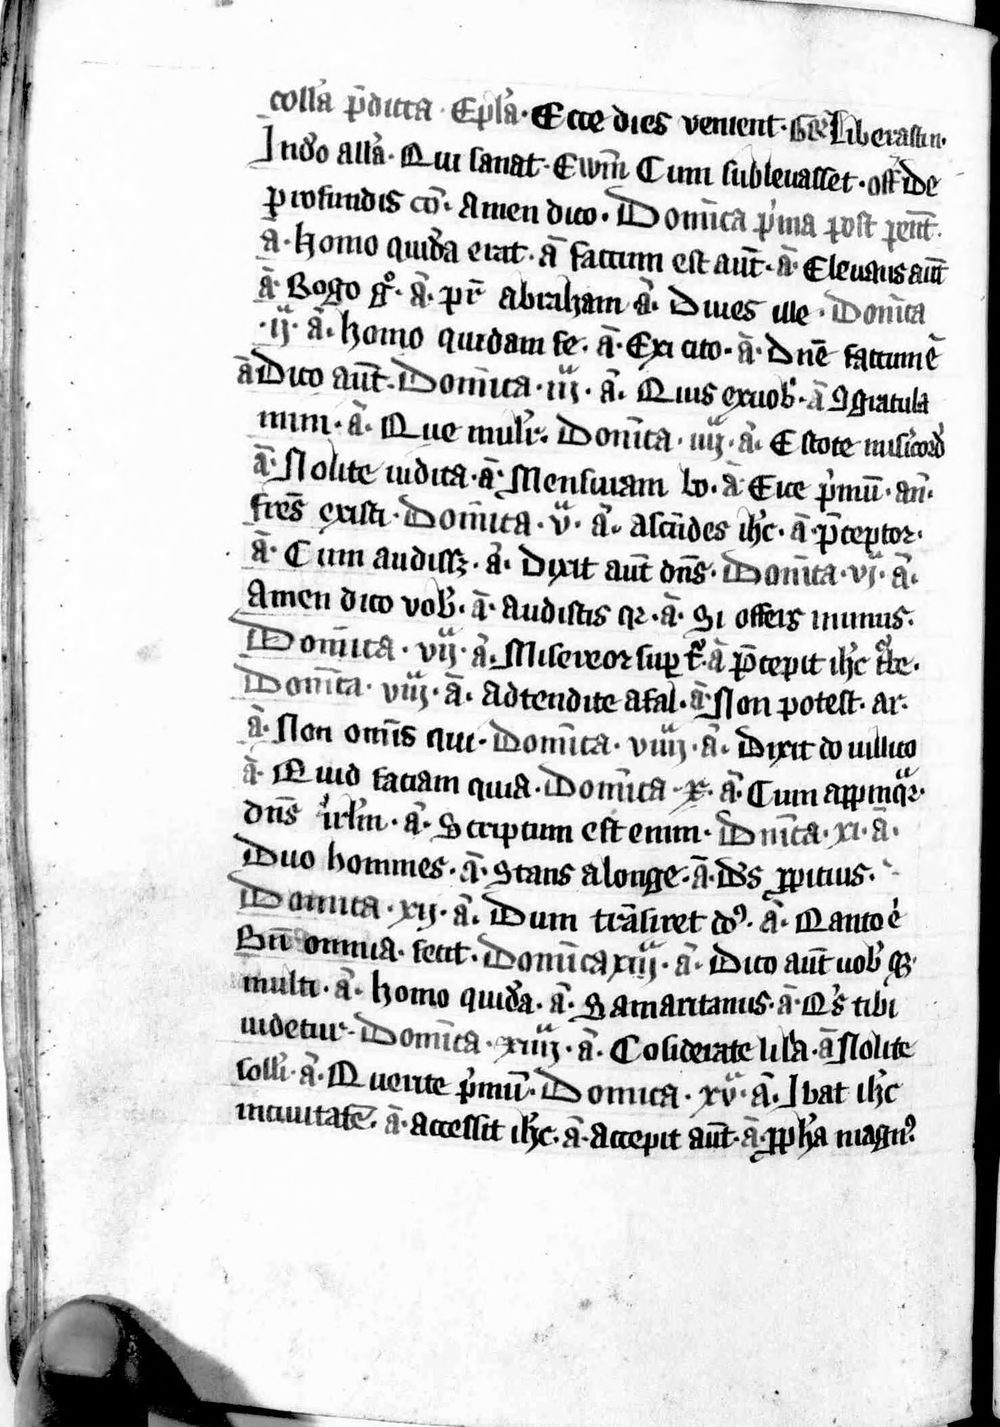 coll'a p̄dicta · Ep̄l'a · Ecce dies venient · Gr̄ Liberasti n·
Indo all'a · Qui sanat · Ewm̄ Cum subleuasset · off De
profundis cō · Amen dico · Domīca p'ma post pent̄ ·
a · homo quidā erat · ā factum est aut̄ · ā · Eleuans aut̄
ā · Rogo g° · ā · pr̄ abraham ā · Diues ille · Domīca
·ij· ā · homo quidam fe · ā · Exi cito · ā · Dn̄e factum ē
ā Dico aut̄ · Domīca · iij · ā · Quis ex uob' · ā ꝯgratula
mini · ā · Que mulr̄ · Domīca · iiij · ā · Estote misicord'
ā · Nolite iudica · ā · Mensuram bo · ā Eice p'mū · an̄ ·
fres̄ existi · Domīca · v · ā · ascēdes ih'c · ā · p̄ceptor ·
ā · Cum audiss₃ · ā · Dixit aut̄ dn̄s · Domīca · vj · ā ·
Amen dico vob' · ā · audistis qr · ā · Si offers munus ·
Domīca · vij · ā · Misereor sup t' · ā p̄cepit ih'c
Domīca · viij · ā · Adtendite a fal · ā Non potest · ar ·
ā · Non om̄is qui · Domīca · viiij · ā · Dixit do uillico
ā · Quid faciam quia · Domīca · x · ā · Cum appinqr ·
dn̄s irl'm · ā · Scriptum est enim · Dnīca · xi · ā ·
Duo homines · ā · Stans a longe · ā · D's ꝓpitius ·
Domīca · xij · ā · Dum trāsiret do' · ā · Quanto e
Bn̄ omnia · fecit · Domīca xiij · ā · Dico aut̄ uob' qz
multi · ā · homo quid'a · ā · Samaritanus · ā · Q's tibi
uidetur · Domīca · xiiij · ā · Cosiderate lil'a · ā Nolite
solli · ā · Querite p'mū · Domica · xv · ā · Ibat ih'c
inciuitatē · ā · accessit ih'c · ā · accepit aut̄ · ā · ꝓph'a magn'